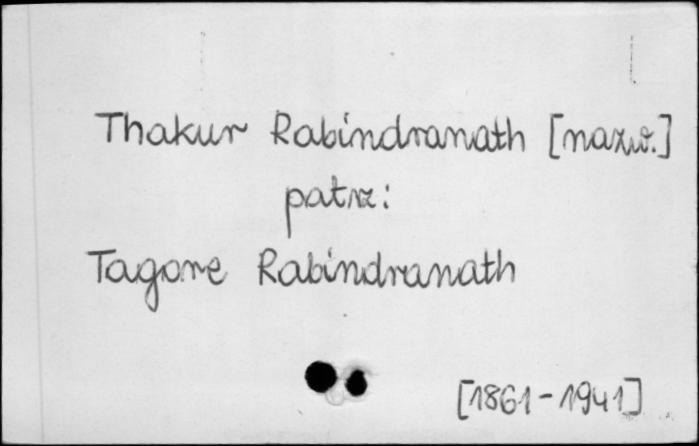 Thakur Rabindranath [nazw.]
patrz:
Tagore Rabindranath
[1861-1941]